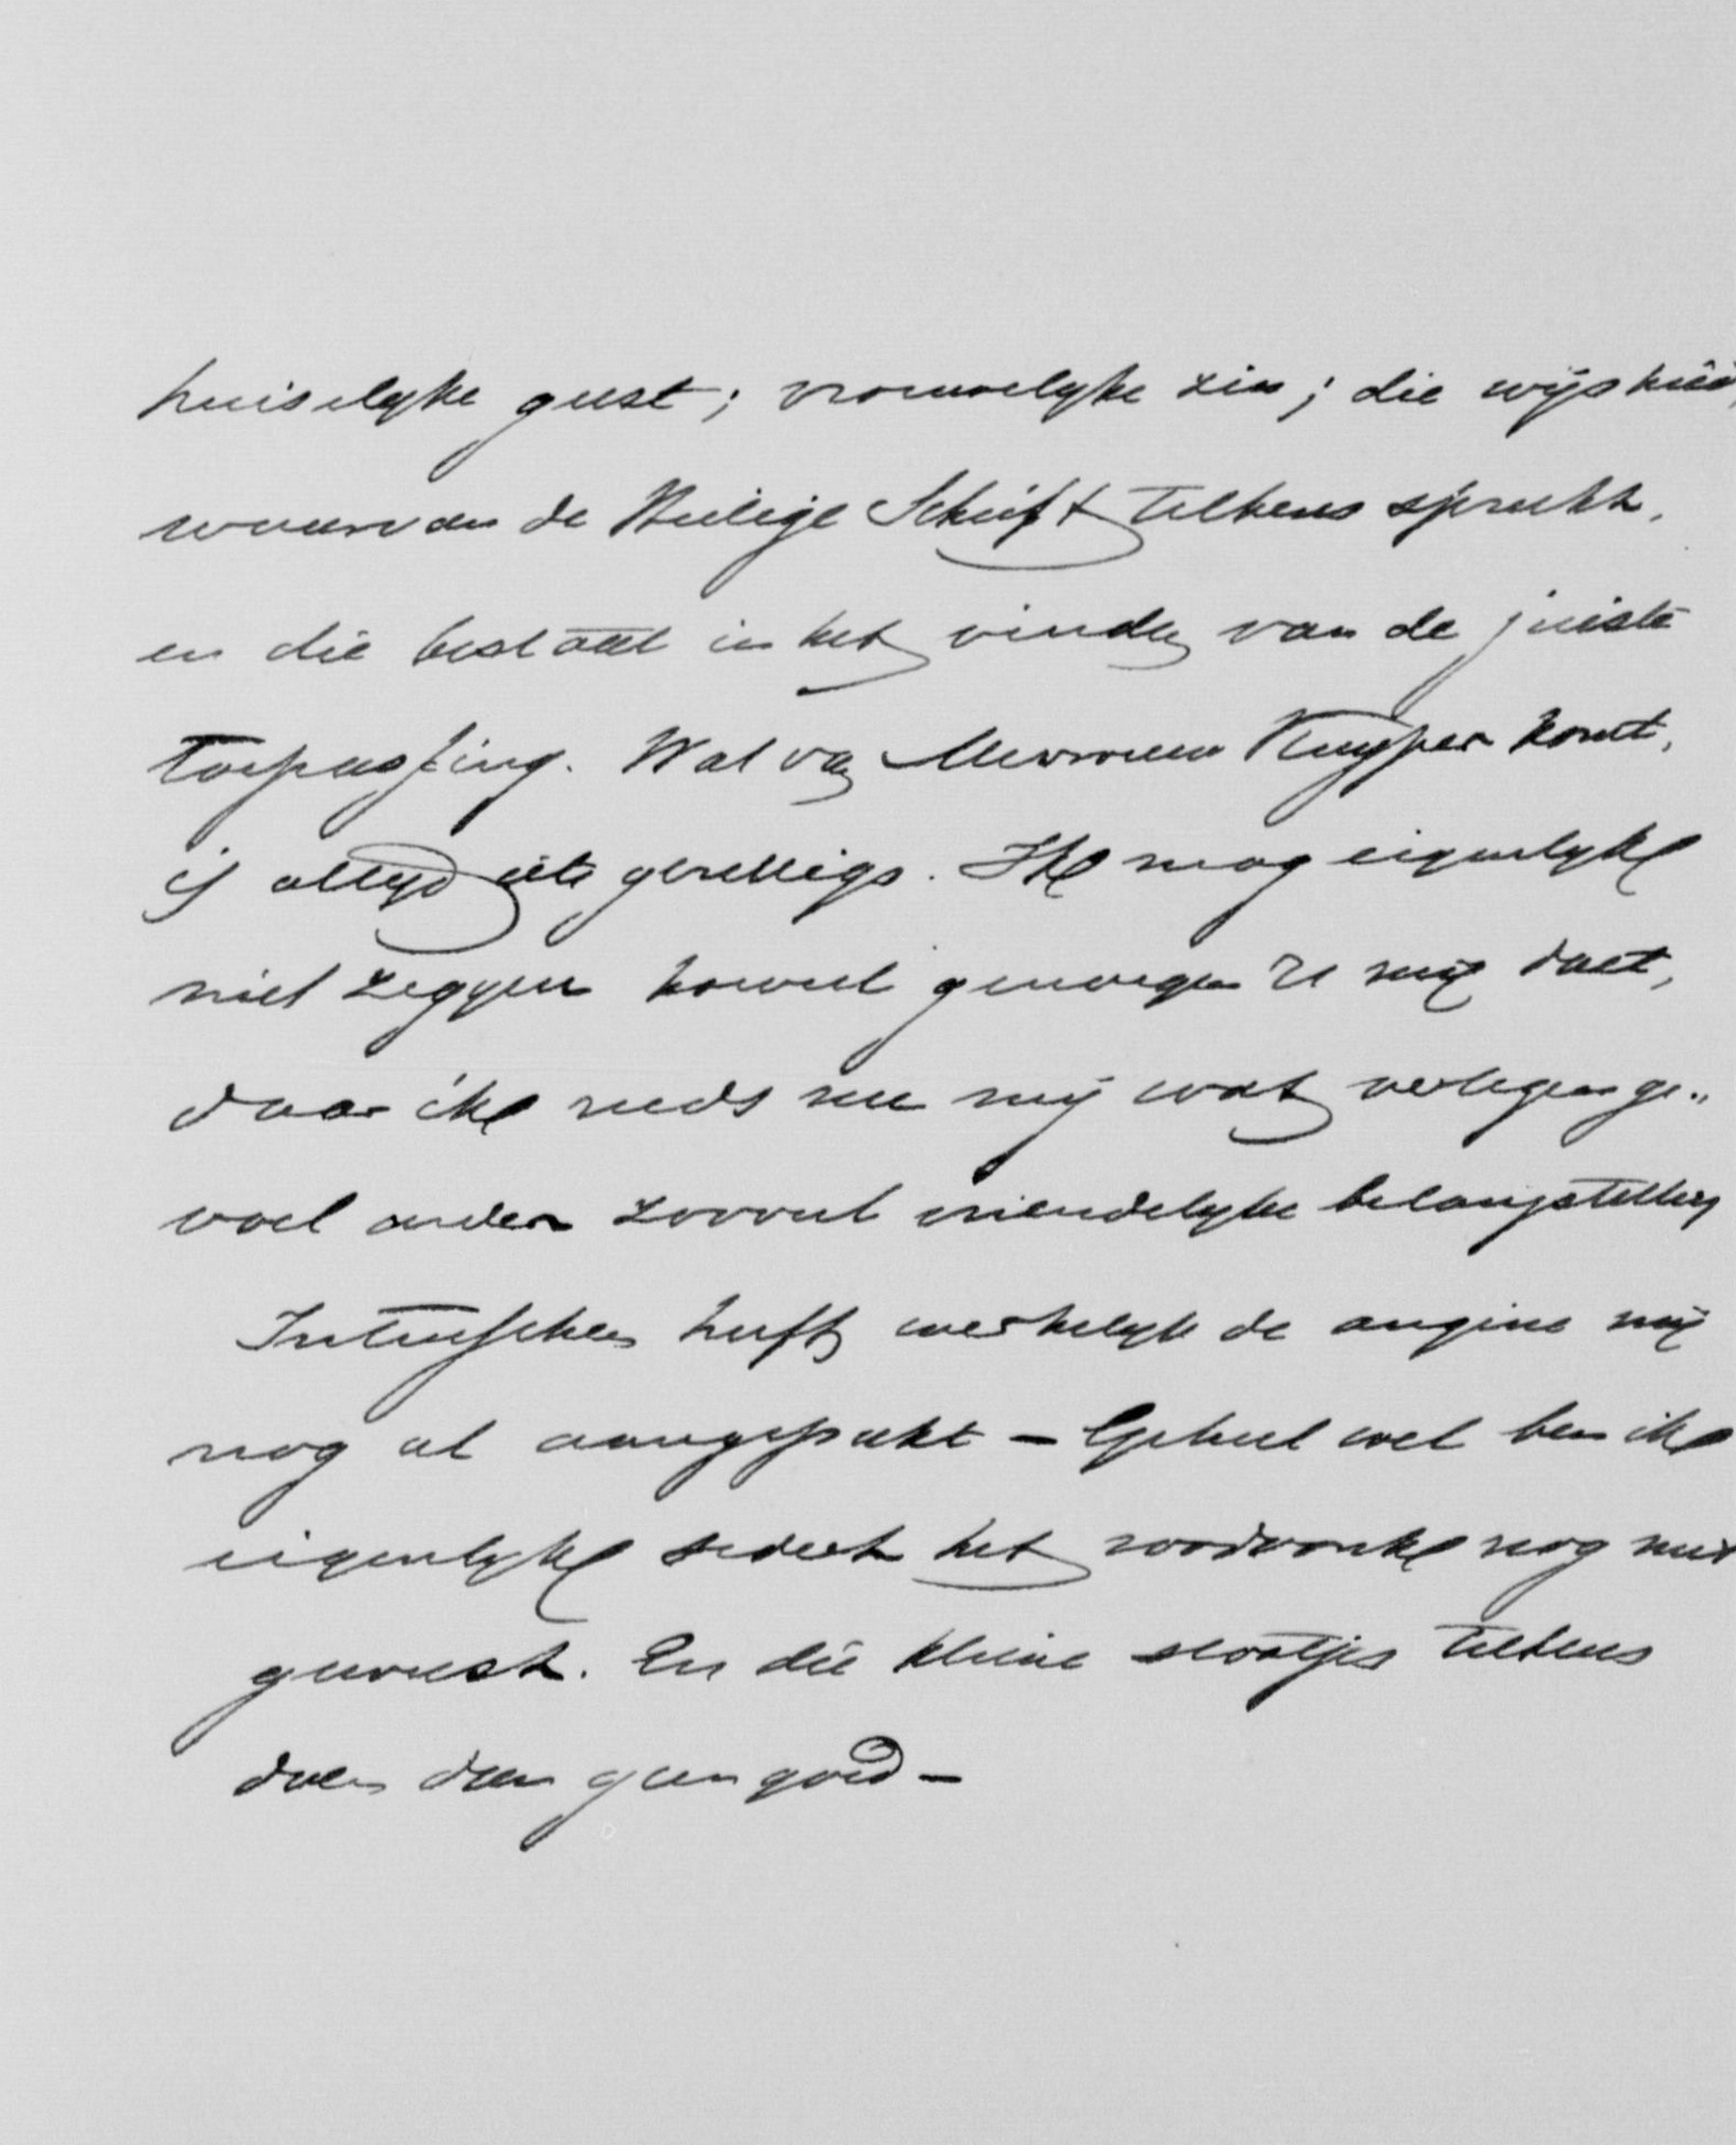 huiselyke geest; vrouwelyke zin; die wijsheid,
waarvan de Heilige Schrift telkens spreekt,
en die bestaat in het vinden van de juiste
toepassing. Wat van Mevrouw Kuyper komt,
is altyd iets gezelligs. Ik mag eigenlyk
niet zeggen hoeveel genoegen U mij doet,
daar ik reeds nu mij wat verlegen ge„
voel onder zooveel vriendelyke belangstelling
Intusschen heeft werkelyk de angine mij
nog al aangepakt – Geheel wel ben ik
eigenlyk sedert het roodvonk nog niet
geweest. En die kleine stootjes telkens
doen dan geen goed –